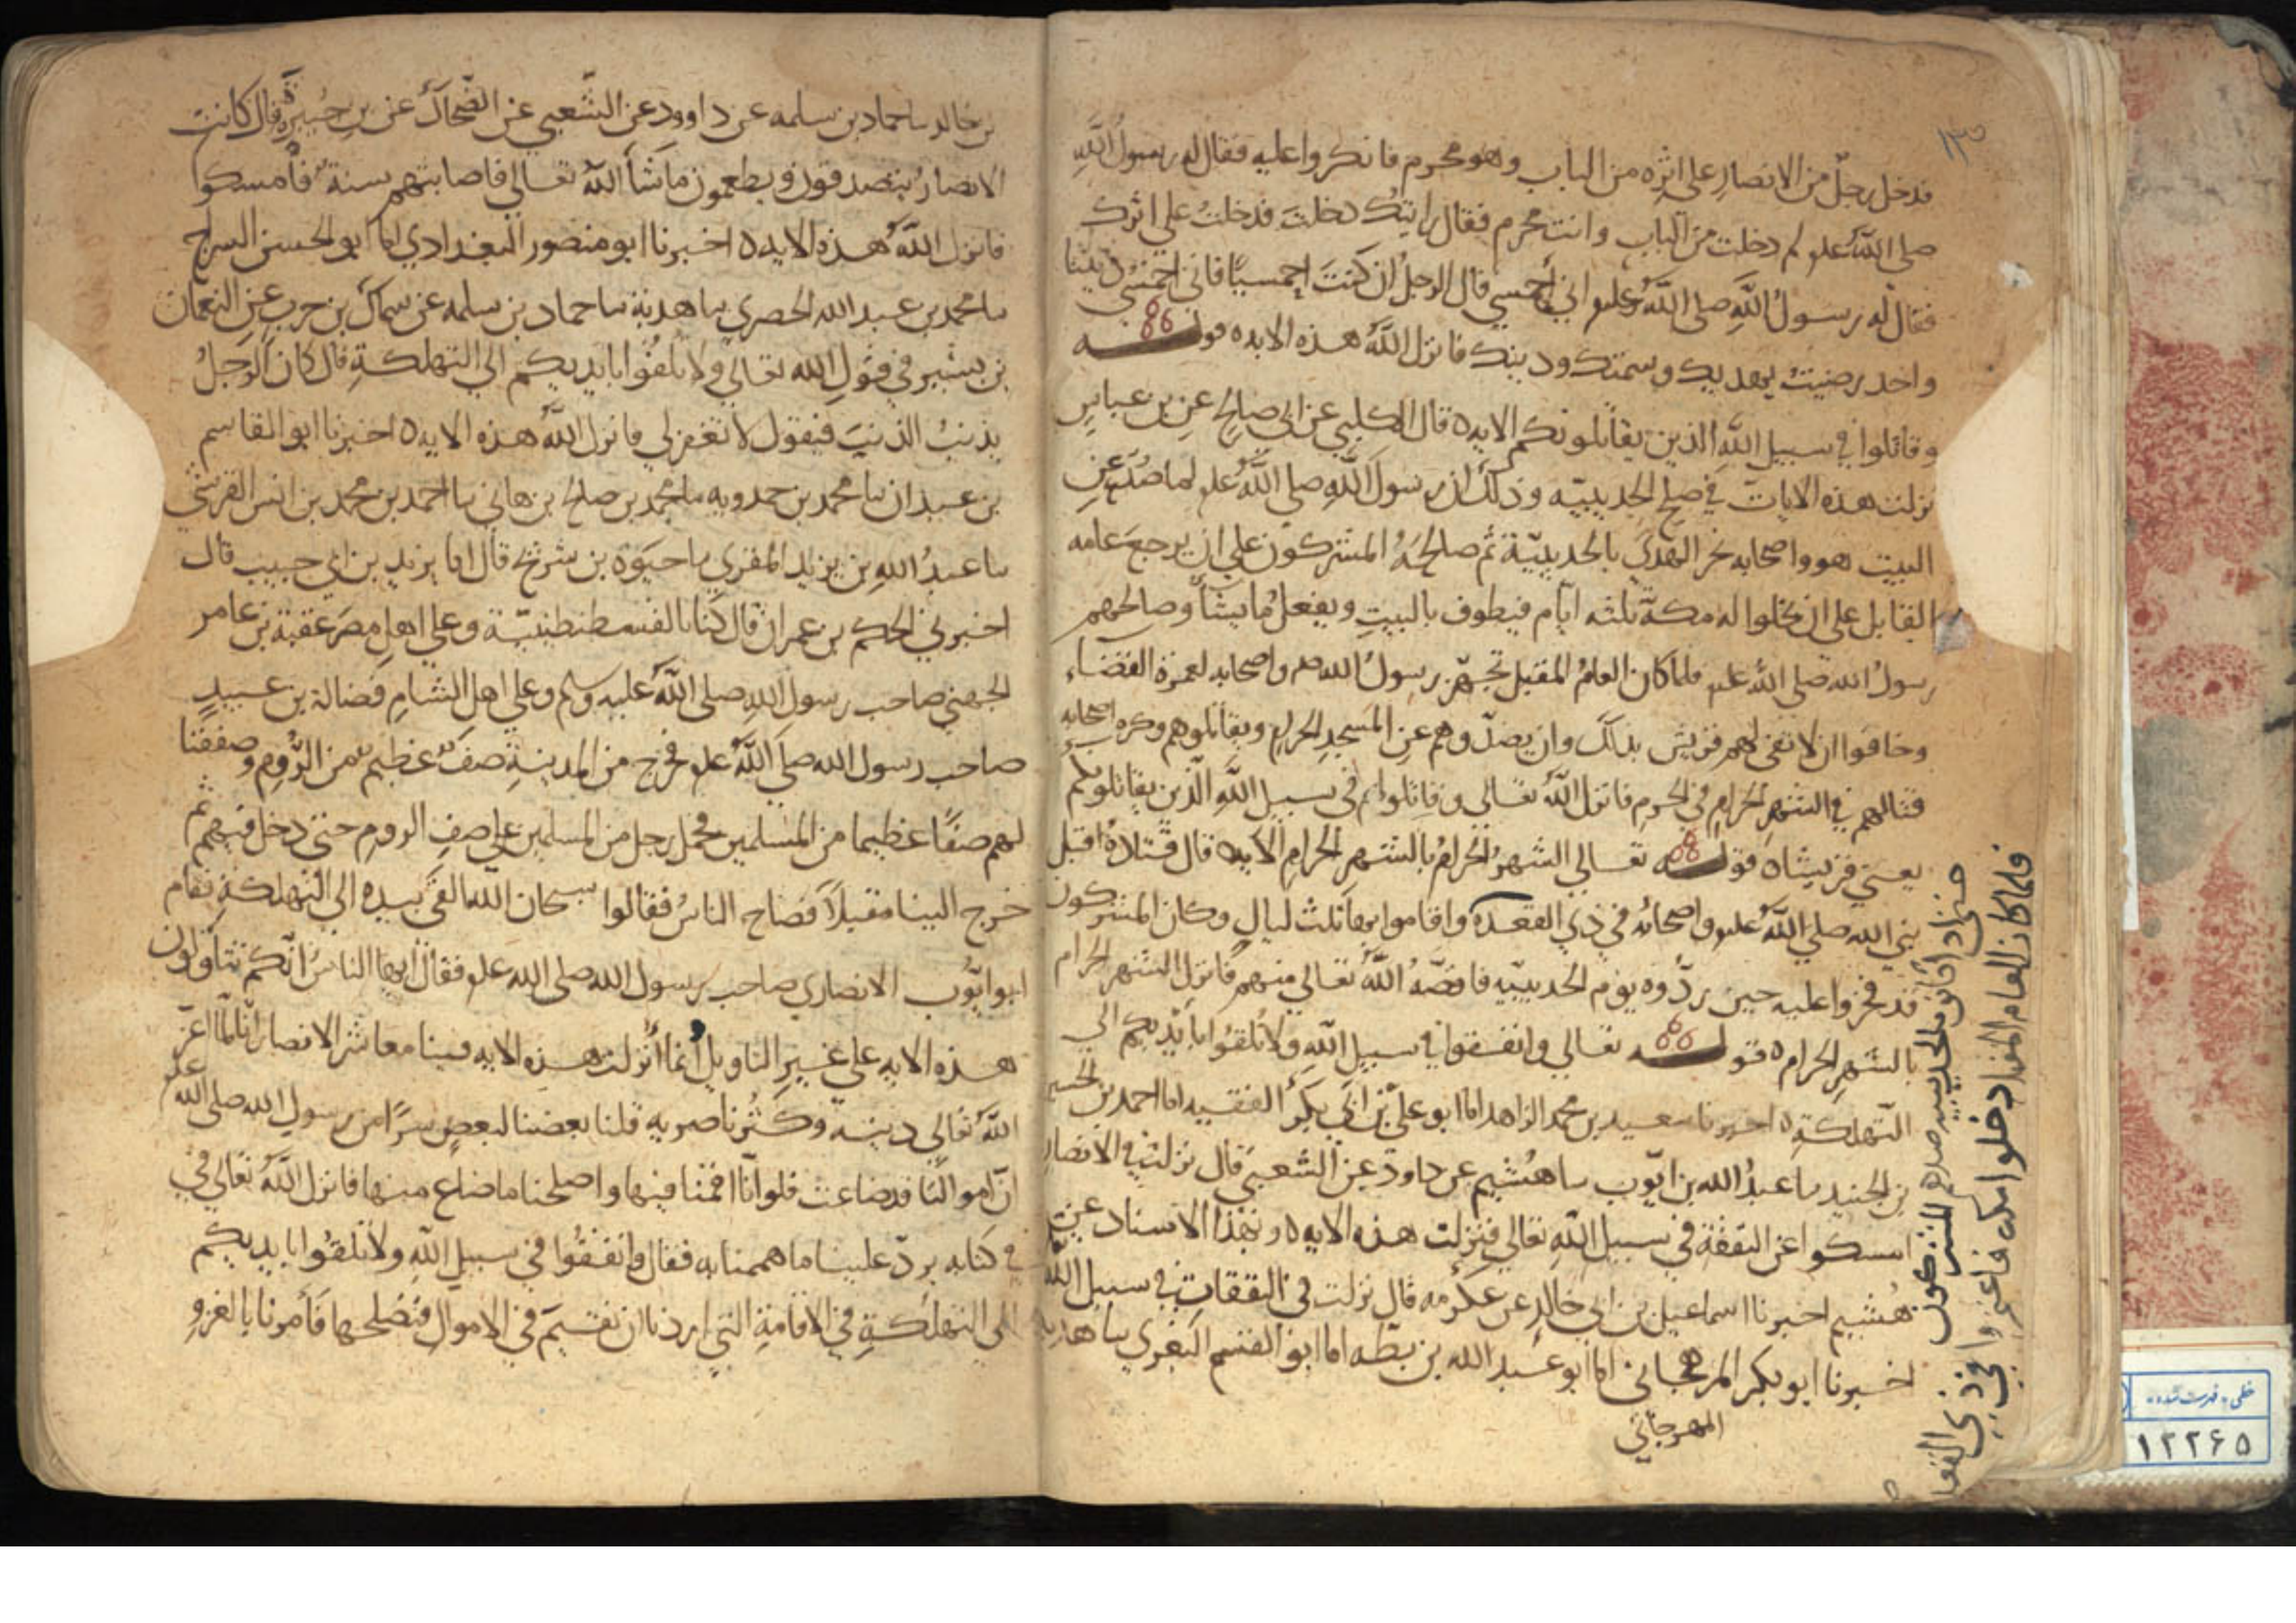 ١٣
فدخل رجل من الانصار على اثره من الباب وهو محرم فانكروا عليه فقال له رسول الله
صلى الله علىه لم دخلت من الباب وانت محرم فقال رايتك دخلت فدخلت على اثرك
فقال له رسول الله صلى الله علىه اني احمسي قال الرجل ان كنت احمسيا فاني احمسي ديننا
واحد رضيت بهديك وسمتك ودينك فانزل الله هذه الايه ه قوله
وقاتلوا في سبيل الله الذين يقاتلونكم الايه ه قال الكلبي عن ابي صالح عن بن عباس
نزلت هذه الايات في صلح الحديبيه وذلك ان رسول الله صلى الله علىه لما صد عن
البيت هو واصحابه نحر الهدي بالحديبية ثم صالحه المشركون على ان يرجع عامه
القابل على ان يخلوا له مكة ثلثه ايام فيطوف بالبيت ويفعل ما يشأ وصالحهم
رسول الله صلى الله علىه فلما كان العام المقبل تجهز رسول الله صلم واصحابه لعمرة القضاء
وخافوا ان لا تفي لهم قريش بذلك وان يصدوهم عن المسجد الحرام ويقاتلوهم وكره اصحابه
قتالهم في الشهر الحرام في الحرم فانزل الله تعالى وقاتلوا في سبيل الله الذين يقاتلونكم
يعني قريشا ه قوله تعالى الشهر الحرام بالشهر الحرام الايه ه قال قتادة اقبل
نبي الله صلى الله علىه واصحابه في ذي القعدة واقاموا بها ثلث ليال وكان المشركون
قد فخروا عليه حين ردوه يوم الحديبيه فاقصه الله تعالى منهم فانزل الشهر الحرام
بالشهر الحرام ه قوله تعالى وانفقوا في سبيل الله ولا تلقوا بايديكم الى
التهلكة ه اخبرنا سعيد بن محمد الزاهد اما ابو علي بن ابي بكر الفقيه اما احمد بن الحسين
بن الجنيد ىا عبد الله بن ايوب ىا هشيم عن داود عن الشعبي قال نزلت في الانصار
امسكوا عن النفقة في سبيل الله تعالى فنزلت هذه الايه ه وبهذا الاسناد عن
هشيم اخبرنا اسماعيل بن ابي خالد عن عكرمه قال نزلت في النفقات في سبيل الله
اخبرنا ابو بكر المرهجاني اما ابو عبد الله بن بطه اما ابو القسم البغوي ىا هدبه
المهرجاني
حتى اذا كانوا بالحديبيه صدهم المشركون
فلما كان العام المقبل دخلوا مكه فاعتمروا في ذي القعدة
بن خالد ىا حماد بن سلمه عن داوود عن الشعبي عن الضحاك عن بن جبيرة قال كانت
الانصار يتصدقون ويطعمون ما شأ الله تعالى فاصابتهم سنة فأمسكوا
فانزل الله هذه الايه ه اخبرنا ابو منصور البغدادي اما ابو الحسن السراج
ىا محمد بن عبد الله الحصري ىا هدبة ىا حماد بن سلمه عن سماك بن حرب عن النعمان
بن بشير في قول الله تعالى ولا تلقوا بايديكم الى التهلكة قال كان الرجل
يذنب الذنب فيقول لا تغفر لي فانزل الله هذه الايه ه اخبرنا ابو القاسم
بن عبدان ىا محمد بن حمدويه ىا محمد بن صالح بن هاني ىا احمد بن محمد بن انس القرشي
ىا عبد الله بن يزيد المقري ىا حيوة بن شريح قال اما يزيد بن ابي حبيب قال
اخبرني الحكم بن عمران قال كنا بالقسطنطينية وعلى اهل مصر عقبة بن عامر
الجهني صاحب رسول الله صلى الله عليه وسلم وعلى اهل الشام فضالة بن عبيد
صاحب رسول الله صلى الله علىه فخرج من المدينة صف عظيم من الروم وصففنا
لهم صفا عظيما من المسلمين فحمل رجل من المسلمين على صف الروم حتى دخل فيهم ثم
خرج الينا مقبلا فصاح الناس فقالوا سبحان الله القى بيده الى التهلكة فقام
ابو ايوب الانصاري صاحب رسول الله صلى الله علىه فقال ايها الناس انكم تتأولون
هذه الايه على غير التاويل انما أنزلت هذه الايه فينا معاشر الانصار انا لما اعز
الله تعالى دينه وكثر ناصريه قلنا بعضنا لبعض سرا من رسول الله صلى الله علىه
ان اموالنا قد ضاعت فلو انا اقمنا فيها واصلحنا ما ضاع منها فانزل الله تعالى في
في كتابه يرد علينا ما هممنا به فقال وانفقوا في سبيل الله ولا تلقوا بايديكم
الى التهلكة في الاقامة التي اردنا ان نقيم في الاموال فنصلحها فأمرنا بالغزو
خطی - فهرست شده
١٢٢٦٥